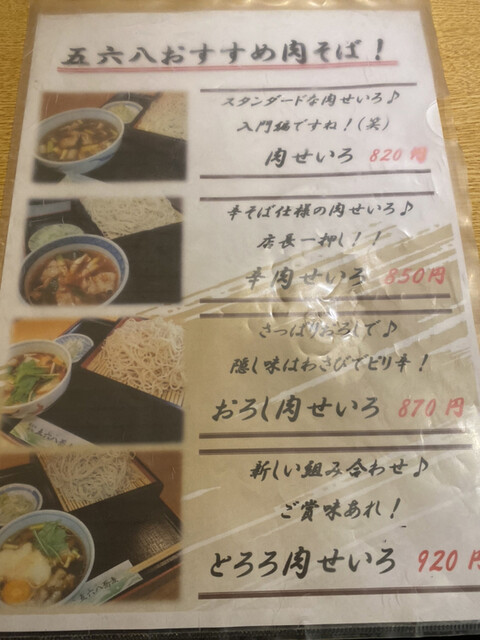 五六八おすすめ肉そば！
スタンダードな肉せいろ♪
入門編ですね！(笑)
肉せいろ 820円
辛そば仕様の肉せいろ♪
店長一押し！！
辛肉せいろ 850円
さっぱりおろしで♪
隠し味はわさびでピリ辛！
おろし肉せいろ 870円
新しい組み合わせ♪
ご賞味あれ！
とろろ肉せいろ 920円